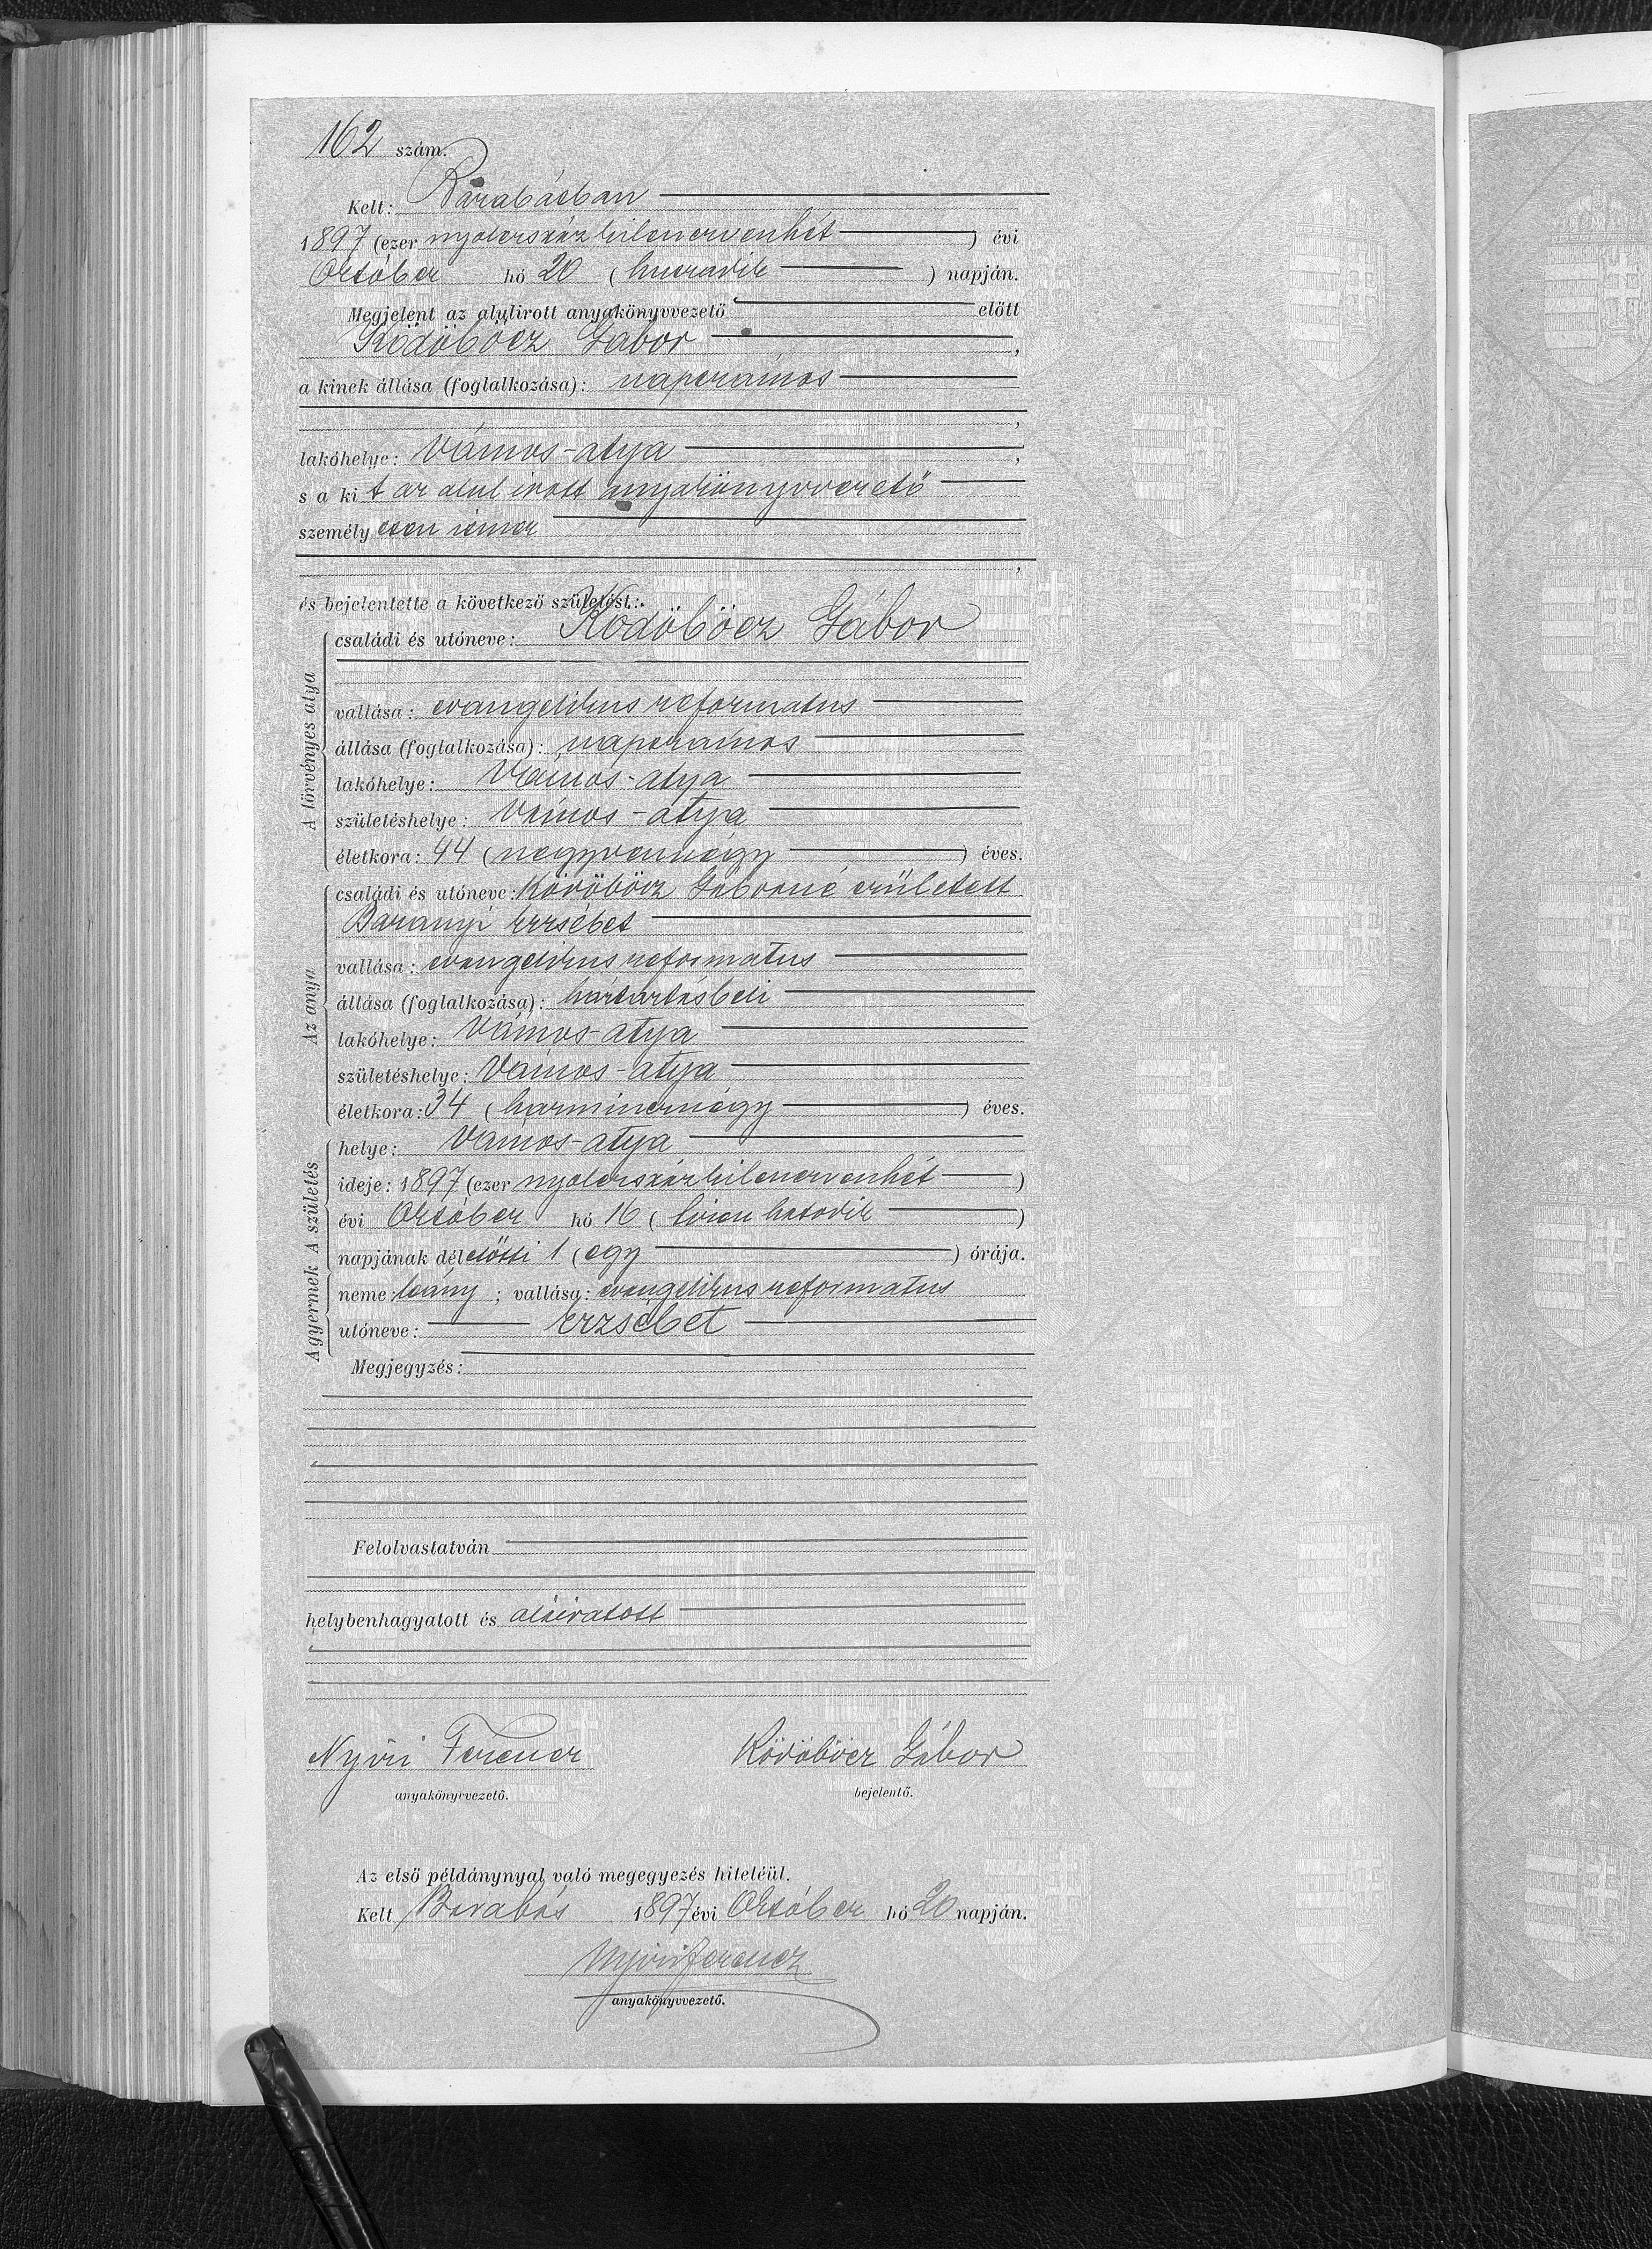 162 szám.
Kelt: Barabásban
1897 (ezer nyolcszázkilencvenhét) évi
Október hó 20 (huszadik) napján.
Megjelent az alulirott anyakönyvvezető előtt
Ködöböcz Gábor,
a kinek állása (foglalkozása): napszámos
,
lakóhelye: Vámos-atya,
s a kit az alul irott anyakönyvvezető
személyesen ismer
,
és bejelentette a következő születést:
A törvényes atya
családi és utóneve: Ködöböcz Gábor
vallása: evangelikus reformatus
állása (foglalkozása): napszámos
lakóhelye: Vámos-atya
születéshelye: Vámos-atya
életkora: 44 (negyvennégy) éves.
Az anya
családi és utóneve: Ködöböcz Gáborné született
Baranyi Erzsébet
vallása: evangelikus reformatus
állása (foglalkozása): háztartásbeli
lakóhelye: Vámos-atya
születéshelye: Vámos-atya
életkora: 34 (harmincnégy) éves.
A születés
helye: Vámos-atya
ideje: 1897 (ezer nyolcszázkilencvenhét)
évi Október hó 16 (tizenhatodik)
napjának délelőtti 1 (egy) órája.
A gyermek
neme: leány; vallása: evangelikus reformatus
utóneve: Erzsébet
Megjegyzés:
Felolvastatván
helybenhagyatott és aláiratott
Nyiri Ferencz Ködöböcz Gábor
anyakönyvvezető. bejelentő.
Az első példánynyal való megegyezés hiteléül.
Kelt Barabás 1897 évi Október hó 20 napján.
Nyiri Ferencz
anyakönyvvezető.